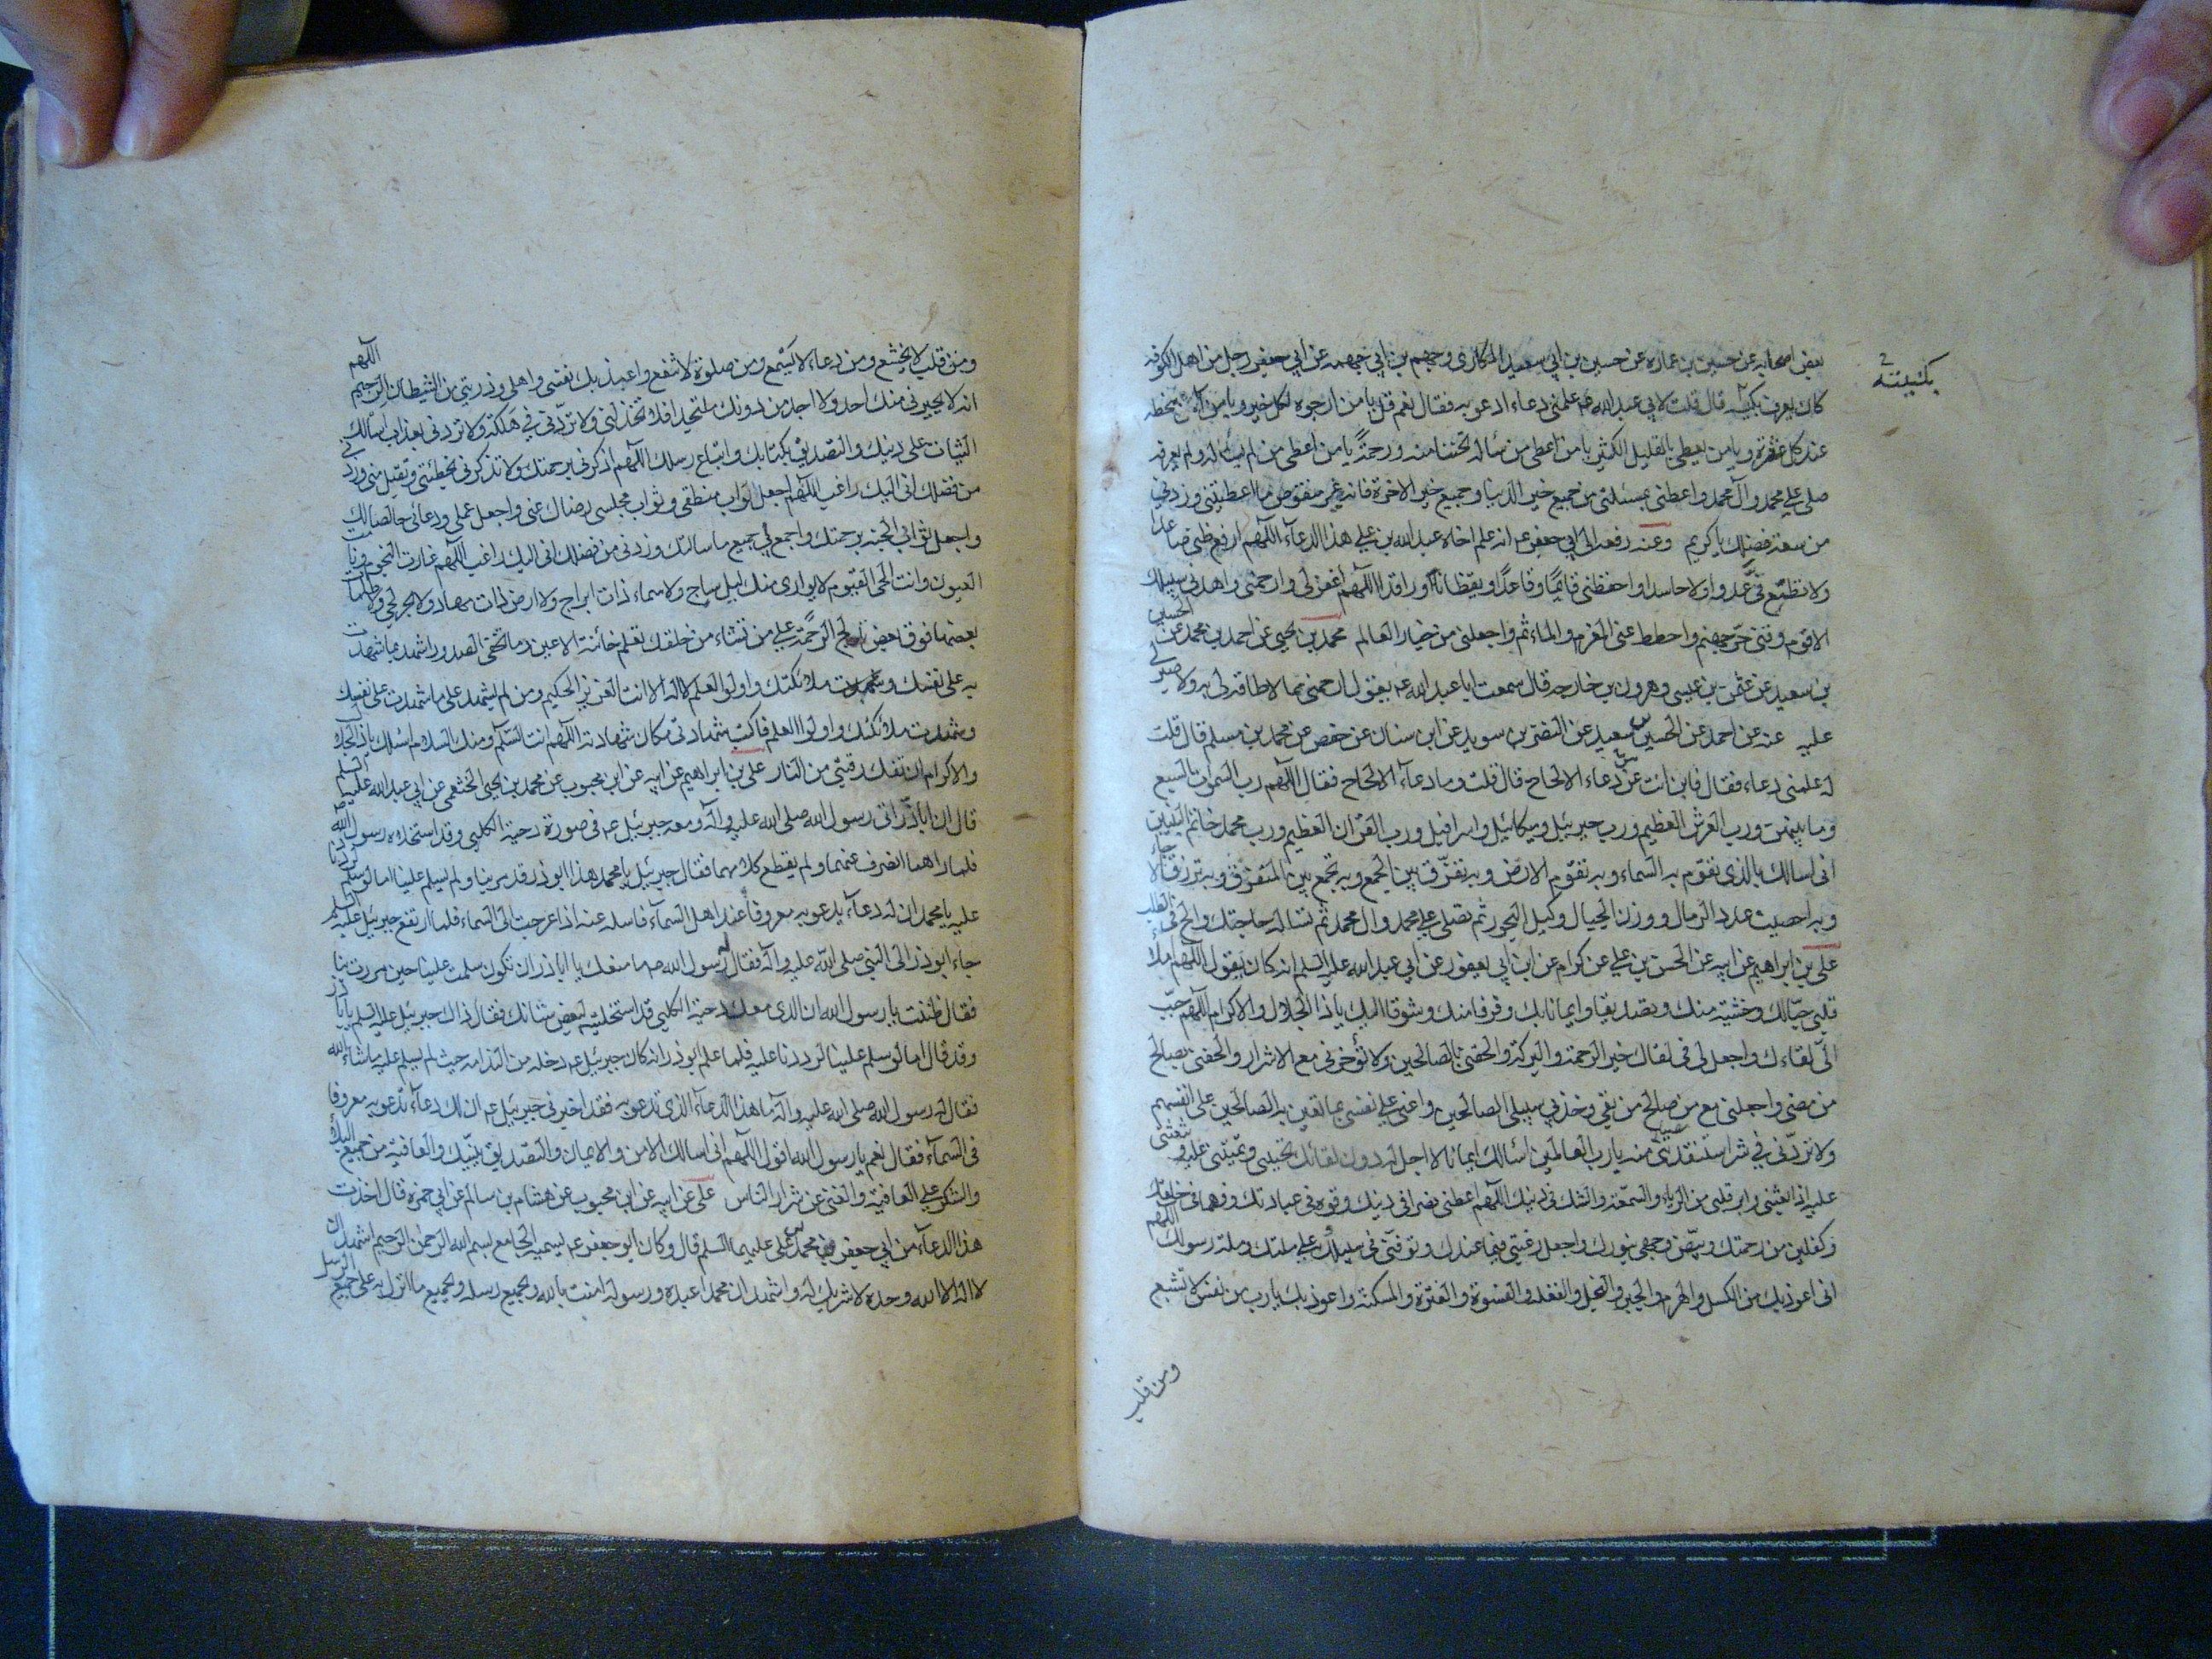 بعض اصحابه عن حسين بن عماره عن حسين بن ابي سعيد المكارى وجهم بن ابي جهمه عن ابي جعفر رجل من اهل الكوفه
بكنيته
كان يعرف بكنيته قال قلت لابي عبد الله ع علمنى دعاء ادعو به فقال نعم قل يا من ارجوه لكل خير ويا من آمن سخطه
عند كل عثرة ويا من يعطى بالقليل الكثير يا من اعطى من سأله تحننا منه ورحمة يا من اعطى من لم يسأله ولم يعرفه
صلى على محمد وآل محمد واعطنى بمسئلتى من جميع خير الدنيا وجميع خير الاخرة فانه غير منقوص ما اعطيتنى وزدنى
من سعة فضلك يا كريم وعنه رفعه الى ابي جعفر ع انه علم اخاه عبد الله بن على هذا الدعاء اللهم ارفع ظنى صاعدا
ولا تطمع فى عدوا ولا حاسدا واحفظنى قايما وقاعدا ويقظانا وراقدا اللهم اغفر لى وارحمنى واهدنى سبيلك
الاقوم وقنى حر جهنم واحطط عنى المغرم والماءثم واجعلنى من خيار العالم محمد بن يحيى عن احمد بن محمد عن الحسين
بن سعيد عن عثمن بن عيسى وهرون بن خارجه قال سمعت ابا عبد الله ع يقول ارحمنى مما لا طاقة لى به ولا صبر لى
عليه عنه عن احمد عن الحسين بن سعيد عن النضر بن سويد عن ابن سنان عن حفص عن محمد بن مسلم قال قلت
له علمنى دعاء فقال فاين انت عن دعاء الالحاح قال قلت وما دعاء الالحاح فقال اللهم رب السموات السبع
وما بينهن ورب العرش العظيم ورب جبرئيل وميكائيل واسرافيل ورب القرآن العظيم ورب محمد خاتم النبيين
انى اسالك بالذى تقوم به السماء وبه تقوم الارض وبه تفرق بين الجمع وبه تجمع بين المتفرق وبه ترزق الاحياء
وبه احصيت عدد الرمال ووزن الجبال وكيل البحور ثم تصلى على محمد وال محمد ثم تساله حاجتك والح فى الطلب
على بن ابراهيم عن ابيه عن الحسن بن على عن كرام عن ابن ابي يعفور عن ابي عبد الله عليه السلم انه كان يقول اللهم املا
قلبى حبا لك وخشية منك وتصديقا وايمانا بك وفرقا منك وشوقا اليك يا ذا الجلال والاكرام اللهم حبب
الى لقاءك واجعل لى فى لقاك خير الرحمة والبركة والحقنى بالصالحين ولا تؤخرنى مع الاشرار والحقنى بصالح
من مضى واجعلنى مع من صالح من بقى وخذ بي سبيل الصالحين واعنى على نفسى بما تعين به الصالحين على انفسهم
ولا تردنى فى شر استنقذتنى منه يا رب العالمين اسئالك ايمانا لا اجل له دون لقائك تحيينى وتميتنى عليه وتبعثنى
عليه اذا بعثتنى وابر قلبى من الرياء والسمعة والشك فى دينك اللهم اعطنى نصرا فى دينك وقوة فى عبادتك وفهما فى خلقك
وكفلين من رحمتك وبيض وجهى بنورك واجعل رغبتى فيما عندك وتوفنى فى سبيلك على ملتك وملة رسولك اللهم
انى اعوذ بك من الكسل والهرم والجبن والبخل والغفلة والقسوة والفترة والمسكنة واعوذ بك يا رب من نفس لا تشبع
ومن قلب
ومن قلب لا يخشع ومن دعاء لا يسمع ومن صلوة لا تنفع واعيذ بك نفسى واهلى وذريتى من الشيطان الرجيم اللهم
انه لا يجيرنى منك احد ولا اجد من دونك ملتحدا فلا تخذلنى ولا تردنى فى هلكة ولا تردنى بعذاب اسالك
الثبات على دينك والتصديق بكتابك واتباع رسلك اللهم اذكرنى برحمتك ولا تذكرنى بخطيئتى وتقبل منى وزدنى
من فضلك انى اليك راغب اللهم اجعل ثواب منطقى وثواب مجلسى رضاك عنى واجعل عملى ودعائى خالصا لك
واجعل ثوابي الجنة برحمتك واجمع لى جميع ما سالتك وزدنى من فضلك انى اليك راغب اللهم غارت النجوم ونامت
العيون وانت الحى القيوم لا يوارى منك ليل ساج ولا سماء ذات ابراج ولا ارض ذات مهاد ولا بحر لجى ولا ظلمات
بعضها فوق بعض تدلج الرحمة على من تشاء من خلقك تعلم خائنة الاعين وما تخفى الصدور اشهد بما شهدت
به على نفسك وشهدت ملائكتك واولوا العلم لا اله الا انت العزيز الحكيم ومن لم يشهد على ما شهدت على نفسك
وشهدت ملائكتك واولوا العلم فاكتب شهادتى مكان شهادته اللهم انت السلام ومنك السلام اسئلك يا ذا الجلال
والاكرام ان تفك رقبتى من النار على بن ابراهيم عن ابيه عن ابن محبوب عن محمد بن يحيى الخثعمى عن ابي عبد الله عليه السلم
قال ان اباذر اتى رسول الله صلى الله عليه وآله ومعه جبرئيل ع فى صورة دحية الكلبى وقد استخلاه رسول الله ص
فلما راهما انصرف عنهما ولم يقطع كلامهما فقال جبرئيل يا محمد هذا ابوذر قد مر بنا ولم يسلم علينا اما لو سلم لرددنا
عليه يا محمد ان له دعاء يدعو به معروفا عند اهل السماء فاسله عنه اذا عرجت الى السماء فلما ارتفع جبرئيل عليه السلم
جاء ابوذر الى النبى صلى الله عليه وآله فقال له رسول الله ص ما منعك يا اباذر ان تكون سلمت علينا حين مررت بنا
فقال ظننت يا رسول الله ان الذى معك دحية الكلبى قد استخليته لبعض شانك فقال ذاك جبرئيل عليه السلم يا باذر
وقد قال اما لو سلم علينا لرددنا عليه فلما علم ابوذر انه كان جبرئيل ع دخله من الندامه حيث لم يسلم عليه ما شاء الله
فقال له رسول الله صلى الله عليه وآله ما هذا الدعاء الذى تدعو به فقد اخبرنى جبرئيل ع ان لك دعاء تدعو به معروفا
فى السماء فقال نعم يا رسول الله اقول اللهم انى اسالك الامن والايمان والتصديق بنبيك والعافية من جميع البلاء
والشكر على العافية والغنى عن شرار الناس على عن ابيه عن ابن محبوب عن هشام بن سالم عن ابي حمزه قال اخذت
هذا الدعاء من ابي جعفر محمد بن على عليهما السلم قال وكان ابو جعفر ع يسميه الجامع بسم الله الرحمن الرحيم اشهد ان
لا اله الا الله وحده لا شريك له واشهد ان محمدا عبده ورسوله امنت بالله وبجميع رسله وبجميع ما انزل به على جميع الرسل